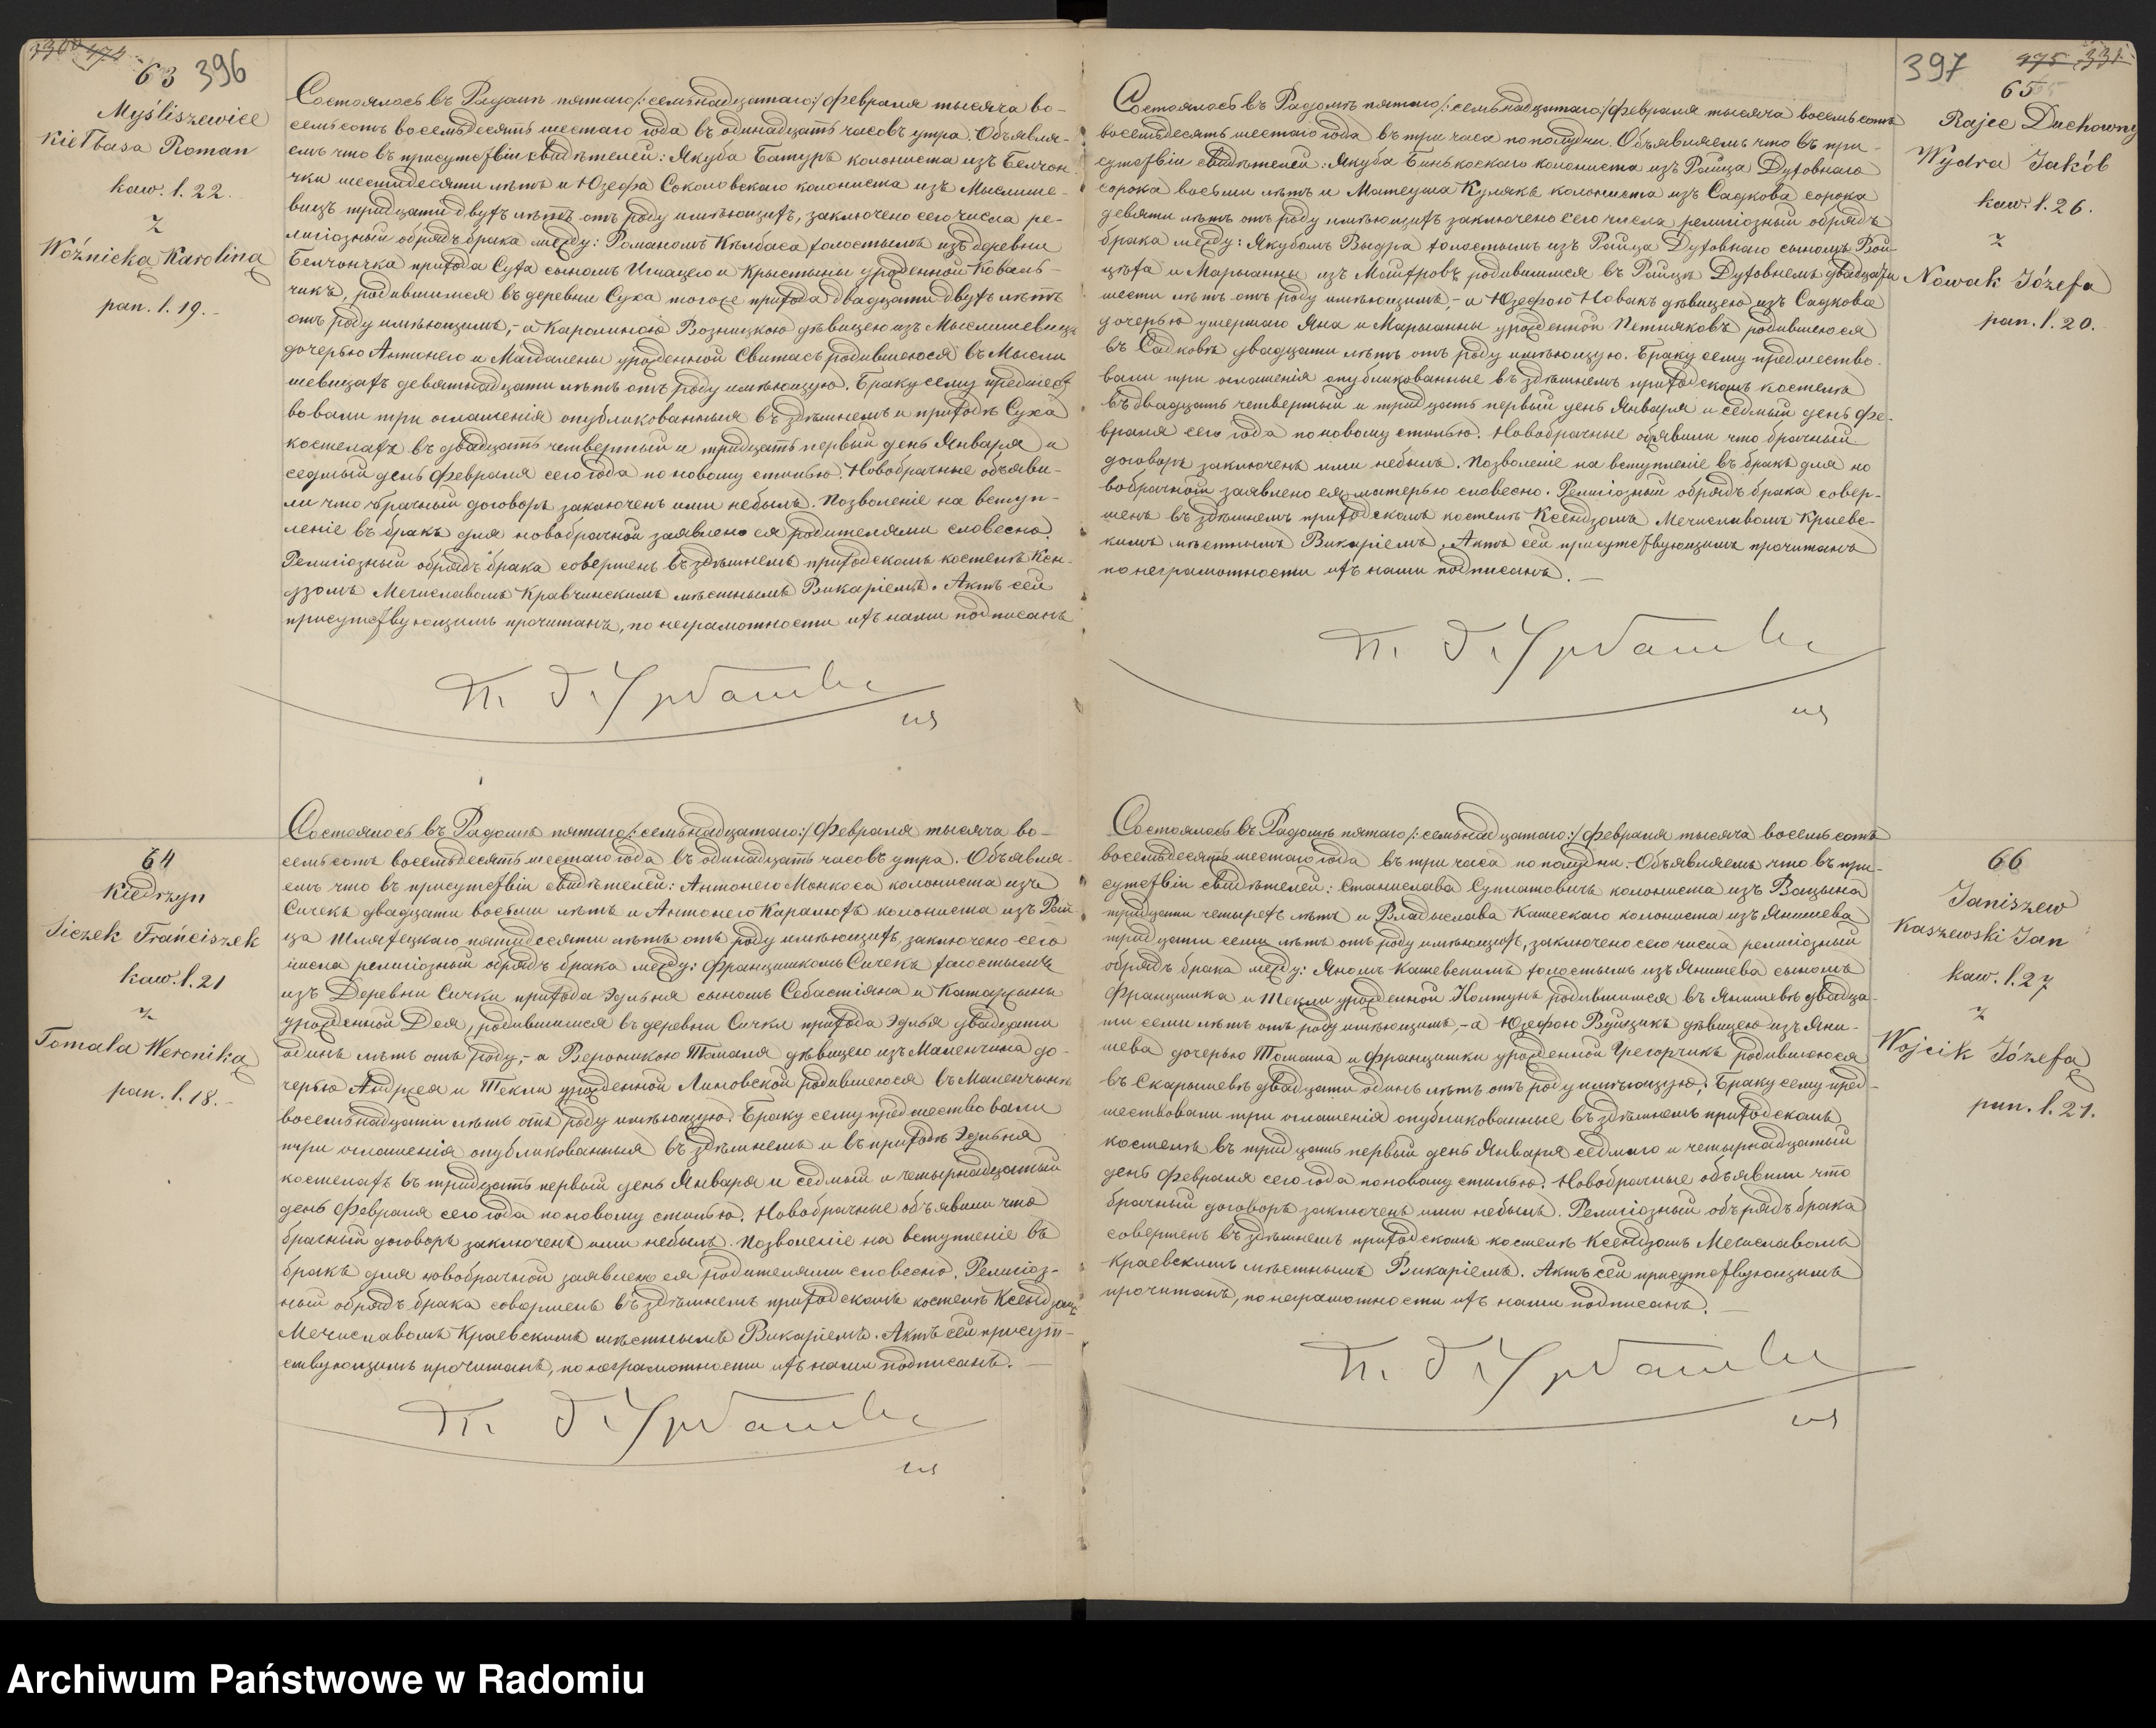 396
63
Myśliszewice
Kiełbasa Roman
kaw. l. 22.
z
Woźnicka Karolina
pan. l. 19.
Состоялось въ Радомѣ пятаго /: семьнадцатаго :/ Февраля тысяча во-
семьсотъ восемьдесятъ шестаго года въ одинадцать часовъ утра. Объявля-
емъ что въ присутствіи свидѣтелей: Якуба Батуръ колониста изъ Белчон-
чки шестидесяти лѣтъ и Юзефа Соколовскаго колониста изъ Мыслише-
вицъ тридцати двухъ лѣтъ отъ роду имѣющихъ, заключено сего числа ре-
лигіозный обрядъ брака между: Романомъ Кѣлбаса холостымъ изъ деревни
Белчончка прихода Суха сыномъ Игнацего и Крыстины урожденной Коваль-
чикъ, родившимся въ деревни Суха тогоже прихода двадцати двухъ лѣтъ
отъ роду имѣющимъ, - а Каролиною Возницкою дѣвицею изъ Мыслишевицъ
дочерью Антонего и Магдалены урожденной Свитасъ родившеюся въ Мысли
шевицахъ девятнадцати лѣтъ отъ роду имѣющую. Браку сему предшест
вовали три оглашенія опубликованныя въ здѣшнемъ и приходѣ Суха
костелахъ въ двадцать четвертый и тридцать первый день Января и
седмый день Февраля сего года по новому стилью. Новобрачные объяви-
ли что брачный договоръ заключенъ ими небылъ. Позволеніе на вступ-
леніе въ бракъ для новобрачной заявлено ея родителями словесно.
Религіозный обрядъ брака совершенъ въ здѣшнемъ приходскомъ костелѣ Ксен-
дзомъ Мечиславомъ Кравчинскимъ мѣстнымъ Викаріемъ. Актъ сей
присутствующимъ прочитанъ, по неграмотности ихъ нами подписанъ
64
Kiedrzyn
Siczek Franciszek
kaw. l. 21
z
Tomala Weronika
pan. l. 18.
Состоялось въ Радомѣ пятаго /: семьнадцатаго :/ Февраля тысяча во-
семьсотъ восемьдесятъ шестаго года въ одинадцать часовъ утра. Объявля-
емъ что въ присутствіи свидѣтелей: Антонего Монкоса колониста изъ
Сичекъ двадцати восьми лѣтъ и Антонего Каралюхъ колониста изъ Рай
ца Шляхецкаго пятидесяти лѣтъ отъ роду имѣющихъ, заключено сего
числа религіозный обрядъ брака между: Францишкомъ Сичекъ холостымъ
изъ Деревни Сички прихода Эдльня сыномъ Себастіяна и Катаржыны
урожденной Дея, родившимся въ деревни Сички прихода Эдльня двадцати
одинъ лѣтъ отъ роду, - а Вероникою Томаля дѣвицею изъ Маленчина до-
черью Анджея и Текли урожденной Липовской родившеюся въ Маленчынѣ
восемьнадцати лѣтъ отъ роду имѣющую. Браку сему предшествовали
три оглашенія опубликованныя въ здѣшнемъ и въ приходѣ Эдльня
костелахъ въ тридцать первый день Января и седмый и четырнадцатый
день Февраля сего года по новому стилью. Новобрачные объявили что
брачный договоръ заключенъ ими небылъ. Позволеніе на вступленіе въ
бракъ для новобрачной заявлено ея родителями словесно. Религіоз-
ный обрядъ брака совершенъ въ здѣшнемъ приходскомъ костелѣ Ксендзомъ
Мечиславомъ Краевскимъ мѣстнымъ Викаріемъ. Актъ сей присут-
ствующимъ прочитанъ, по неграмотности ихъ нами подписанъ.
397
65
Rajec Duchowny
Wydra Jakób
kaw. l. 26.
z
Nowak Józefa
pan. l. 20.
Состоялось въ Радомѣ пятаго /: семьнадцатаго :/ Февраля тысяча восемьсотъ
восемьдесятъ шестаго года въ три часа по полудни. Объявляемъ что въ при-
сутствіи свидѣтелей: Якуба Биньковскаго колониста изъ Райца Духовнаго
сорока восьми лѣтъ и Матеуша Кулякъ колониста изъ Садкова сорока
девяти лѣтъ отъ роду имѣющихъ заключено сего числа религіозный обрядъ
брака между: Якубомъ Выдра холостымъ изъ Райца Духовнаго сыномъ Вой-
цѣха и Марыанны изъ Майхровъ родившимся въ Райцѣ Духовнемъ двадцати
шести лѣтъ отъ роду имѣющимъ, - а Юзефою Новакъ дѣвицею изъ Садкова
дочерью умершаго Яна и Марыанны урожденной Петняковъ родившеюся
въ Садковѣ двадцати лѣтъ отъ роду имѣющую. Браку сему предшество-
вали три оглашенія опубликованные въ здѣшнемъ приходскомъ костелѣ
въ двадцать четвертый и тридцать первый день Января и седмый день Фе-
враля сего года по новому стилью. Новобрачные объявили что брачный
договоръ заключенъ ими небылъ. Позволеніе на вступленіе въ бракъ для но
вобрачной заявлено ея матерью словесно. Религіозный обрядъ брака совер-
шенъ въ здѣшнемъ приходскомъ костелѣ Ксендзомъ Мечиславомъ Краевс-
кимъ мѣстнымъ Викаріемъ. Актъ сей присутствующимъ прочитанъ
по неграмотности ихъ нами подписанъ.
66
Janiszew
Kaszewski Jan
kaw. l. 27
z
Wojcik Józefa
pan. l. 21.
Состоялось въ Радомѣ пятаго /: семьнадцатаго :/ Февраля тысяча восемьсотъ
восемьдесятъ шестаго года въ три часа по полудни. Объявляемъ что въ при-
сутствіи свидѣтелей: Станислава Суплатовичъ колониста изъ Вацына
тридцати четырехъ лѣтъ и Владыслава Кашескаго колониста изъ Янишева
тридцати семи лѣтъ отъ роду имѣющихъ, заключено сего числа религіозный
обрядъ брака между: Яномъ Кашевскимъ холостымъ изъ Янишева сыномъ
Францишка и Текли урожденной Колтунъ родившимся въ Янишевѣ двадца-
ти семи лѣтъ отъ роду имѣющимъ, - а Юзефою Вуйцикъ дѣвицею изъ Яни-
шева дочерью Томаша и Францишки урожденной Грегорчикъ родившеюся
въ Скарышевѣ двадцати одинъ лѣтъ отъ роду имѣющую. Браку сему пред-
шествовали три оглашенія опубликованные въ здѣшнемъ приходскомъ
костелѣ въ тридцать первый день Января седмаго и четырнадцатый
день Февраля сего года по новому стилью. Новобрачные объявили что
брачный договоръ заключенъ ими небылъ. Религіозный обърядъ брака
совершенъ въ здѣшнемъ приходскомъ костелѣ Ксендзомъ Мечиславомъ
Краевскимъ мѣстнымъ Викаріемъ. Актъ сей присутствующимъ
прочитанъ, по неграмотности ихъ нами подписанъ.
Archiwum Państwowe w Radomiu